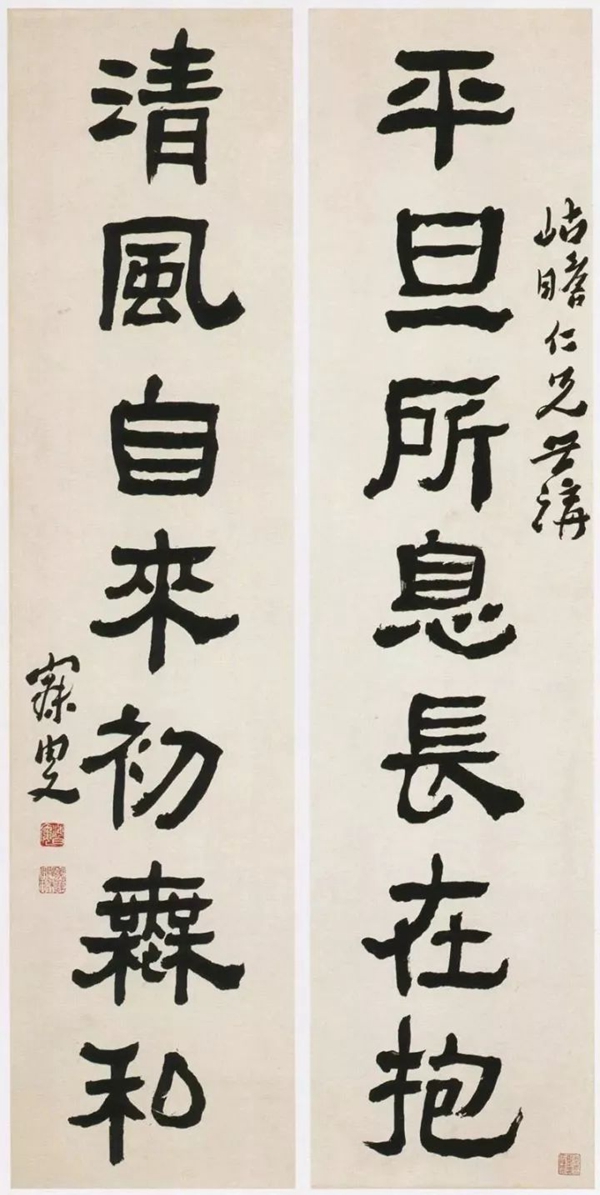 岵瞻仁兄世講
平旦所息長在抱
清風自來初橆和
寐叟